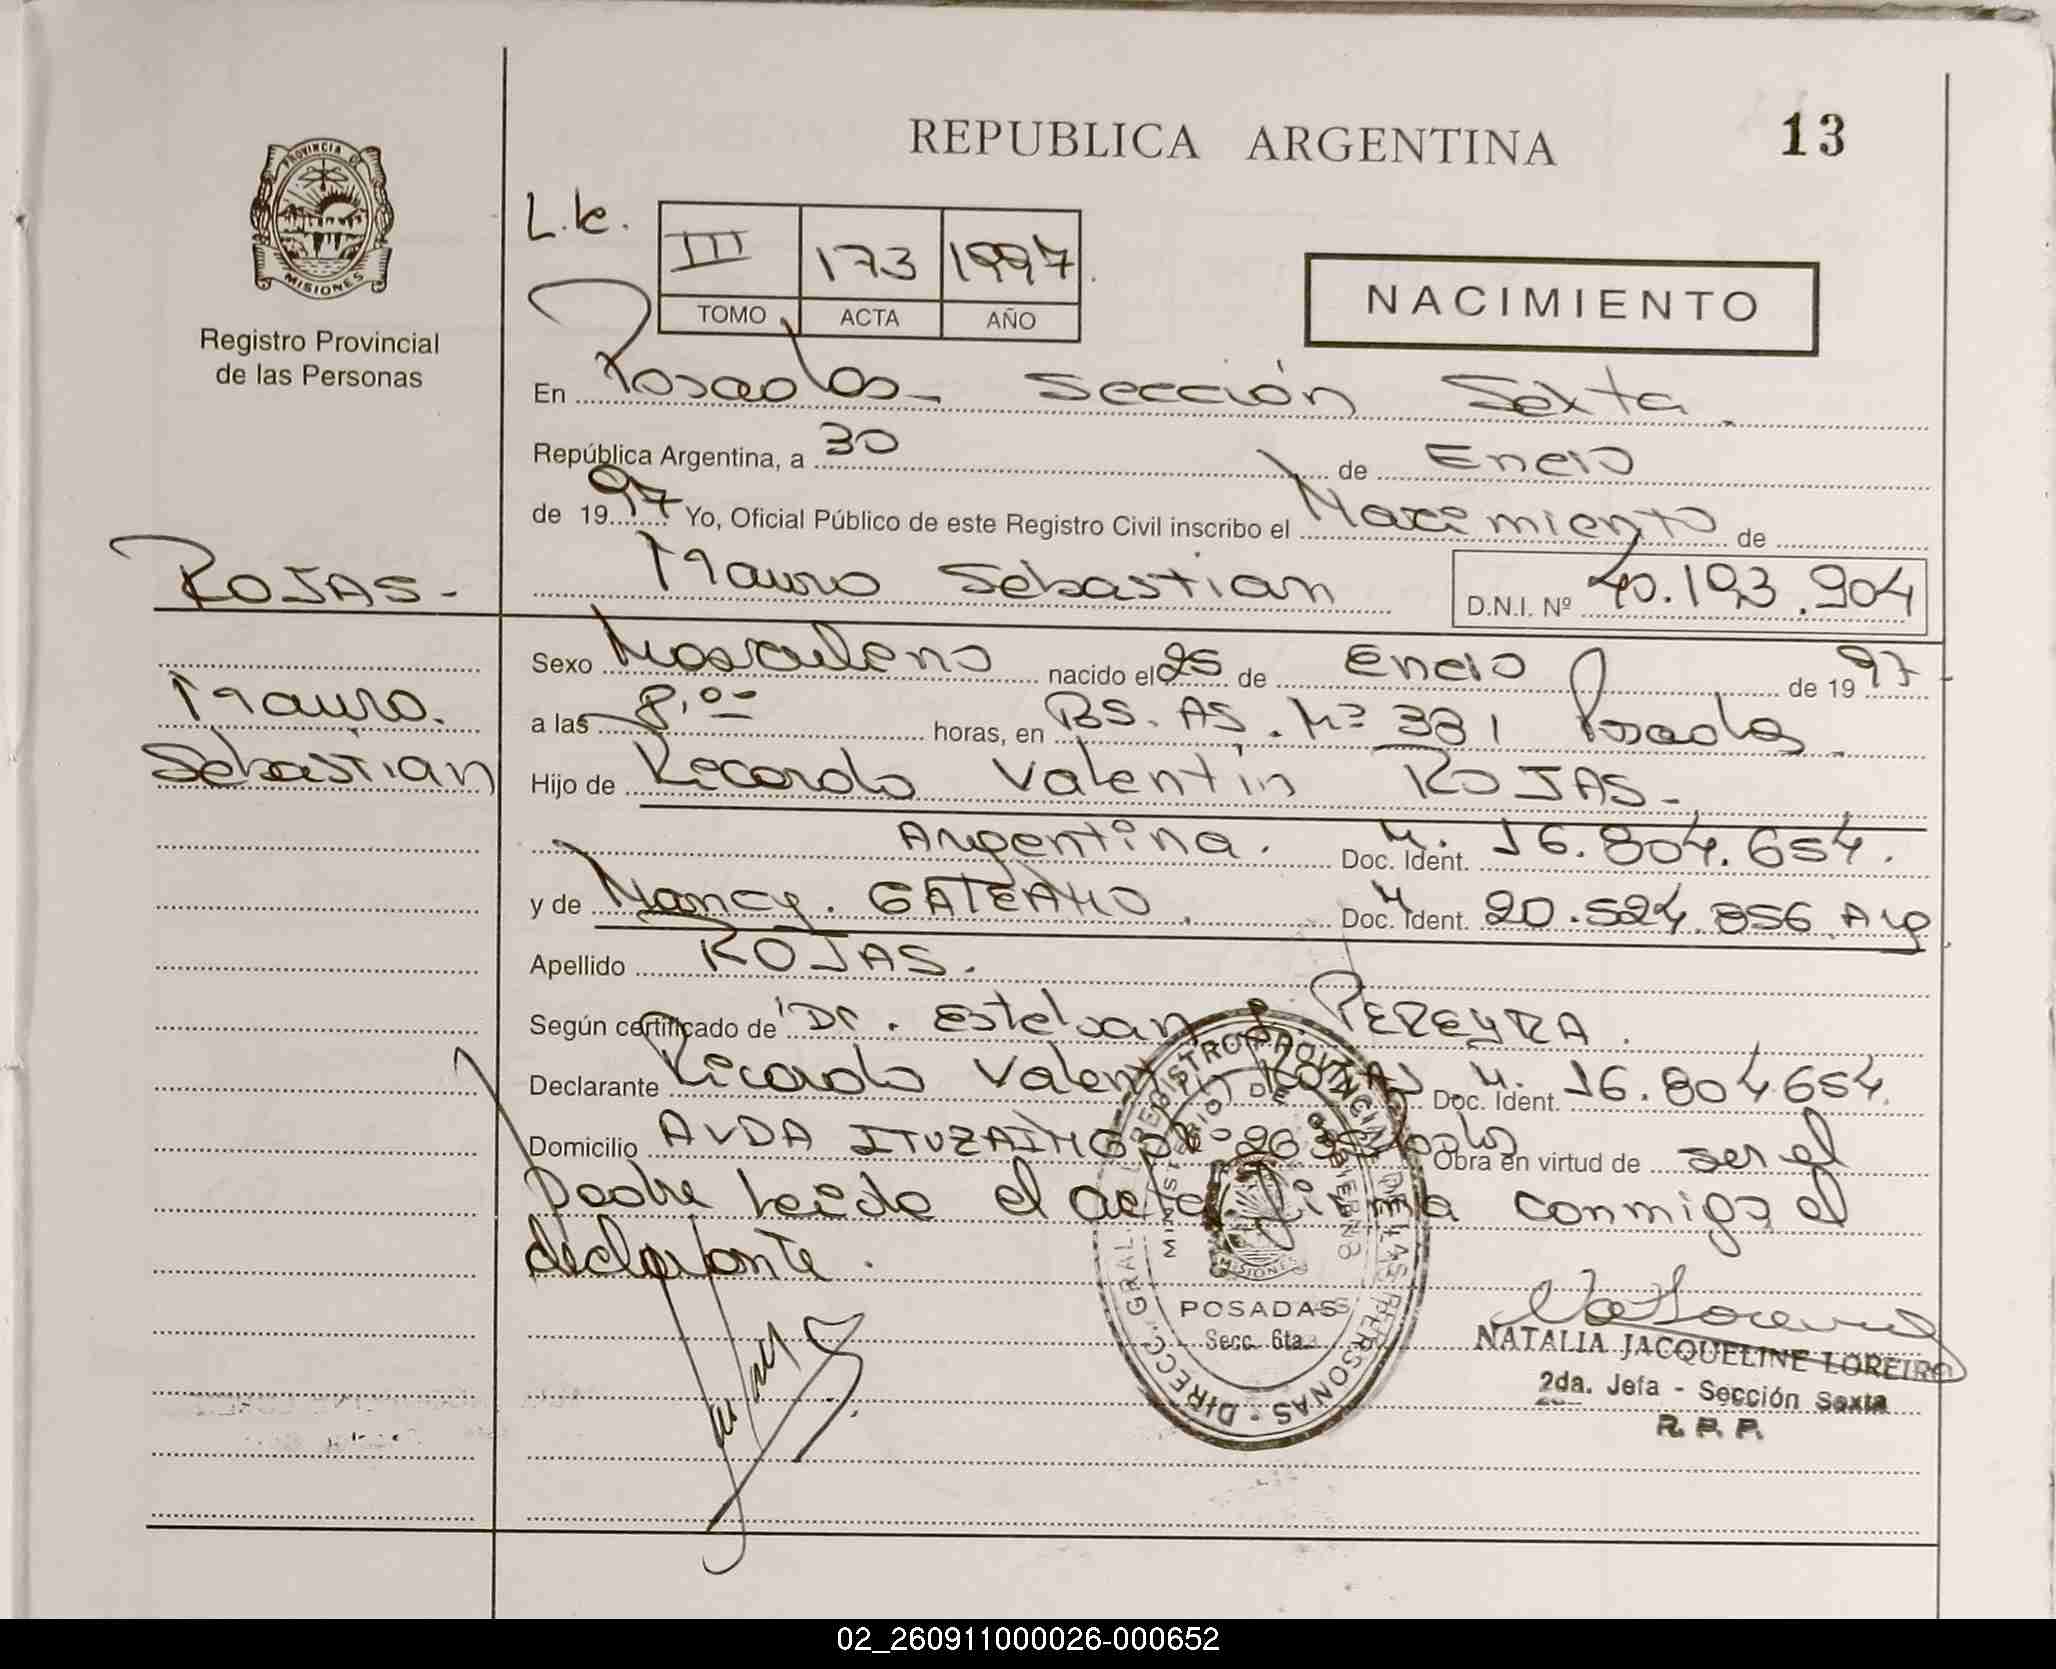 REPUBLICA ARGENTINA
13
PROVINCIA DE
MISIONES
Registro Provincial
de las Personas
III 173 1997
TOMO ACTA AÑO
NACIMIENTO
En Posadas - Sección Sexta.
República Argentina, a 30 de Enero
de 1997 Yo, Oficial Público de este Registro Civil inscribo el Nacimiento de
ROJAS - Mauro Sebastian D.N.I. Nº 40.193.904
Sexo Masculino nacido el 25 de Enero de 1997
Mauro. a las 8,00 horas, en BS. AS. Nº 381 Posadas.
Sebastian Hijo de Ricardo Valentin ROJAS -
Argentina. Doc. Ident. 16.804.654.
y de Nancy. Doc. Ident. 20.524.856 Arg
Apellido ROJAS.
Según certificado de Dr. Esteban J. PEREYRA.
Declarante Ricardo Valentin ROJAS Doc. Ident. 16.804.654.
Domicilio AVDA ITUZAINGO Nº Posadas Obra en virtud de ser el
padre leida el acta firma conmigo el
declarante.
DIRECC. GRAL. REGISTRO PROVINCIAL DE LAS PERSONAS
MINISTERIO DE GOBIERNO
MISIONES
POSADAS
Secc. 6ta.
NATALIA JACQUELINE LOREIRO
2da. Jefa - Sección Sexta
R. P. P.
02_260911000026-000652